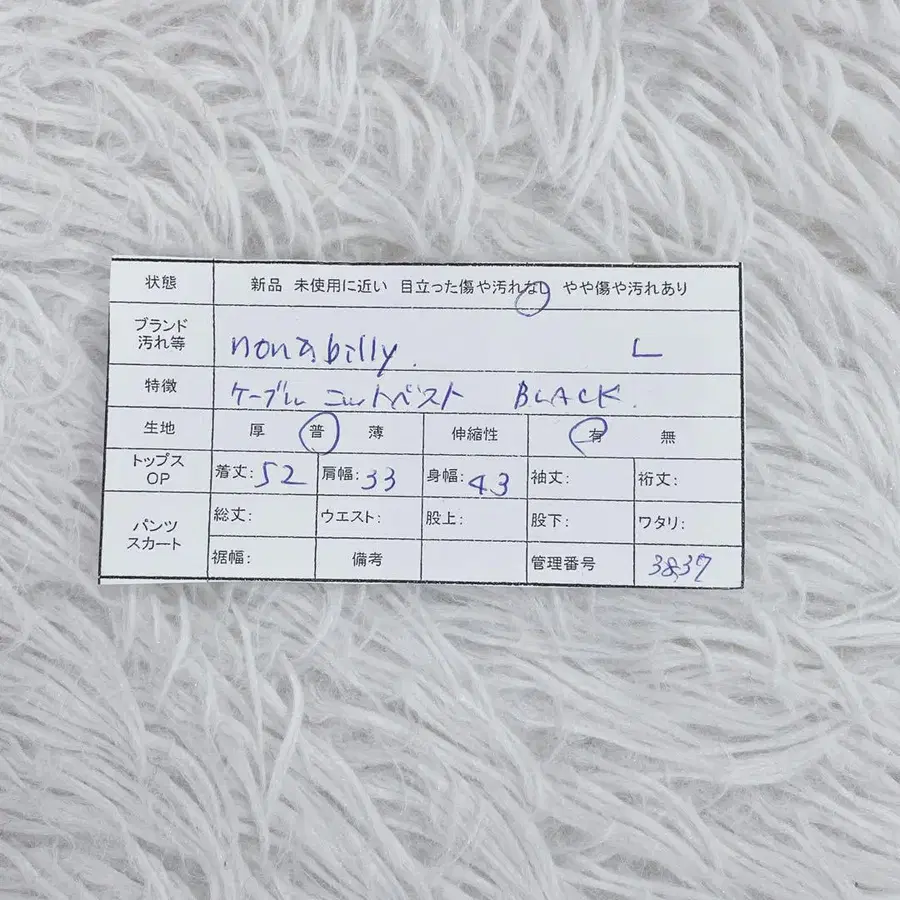 状態 新品 未使用に近い 目立った傷や汚れなし やや傷や汚れあり
ブランド
汚れ等 nona.billy. L
特徴 ケーブル ニットベスト BLACK.
生地 厚 普 薄 伸縮性 有 無
トップス
OP 着丈:52 肩幅:33 身幅:43 袖丈: 裄丈:
パンツ
スカート 総丈: ウエスト: 股上: 股下: ワタリ:
裾幅: 備考 管理番号 3837